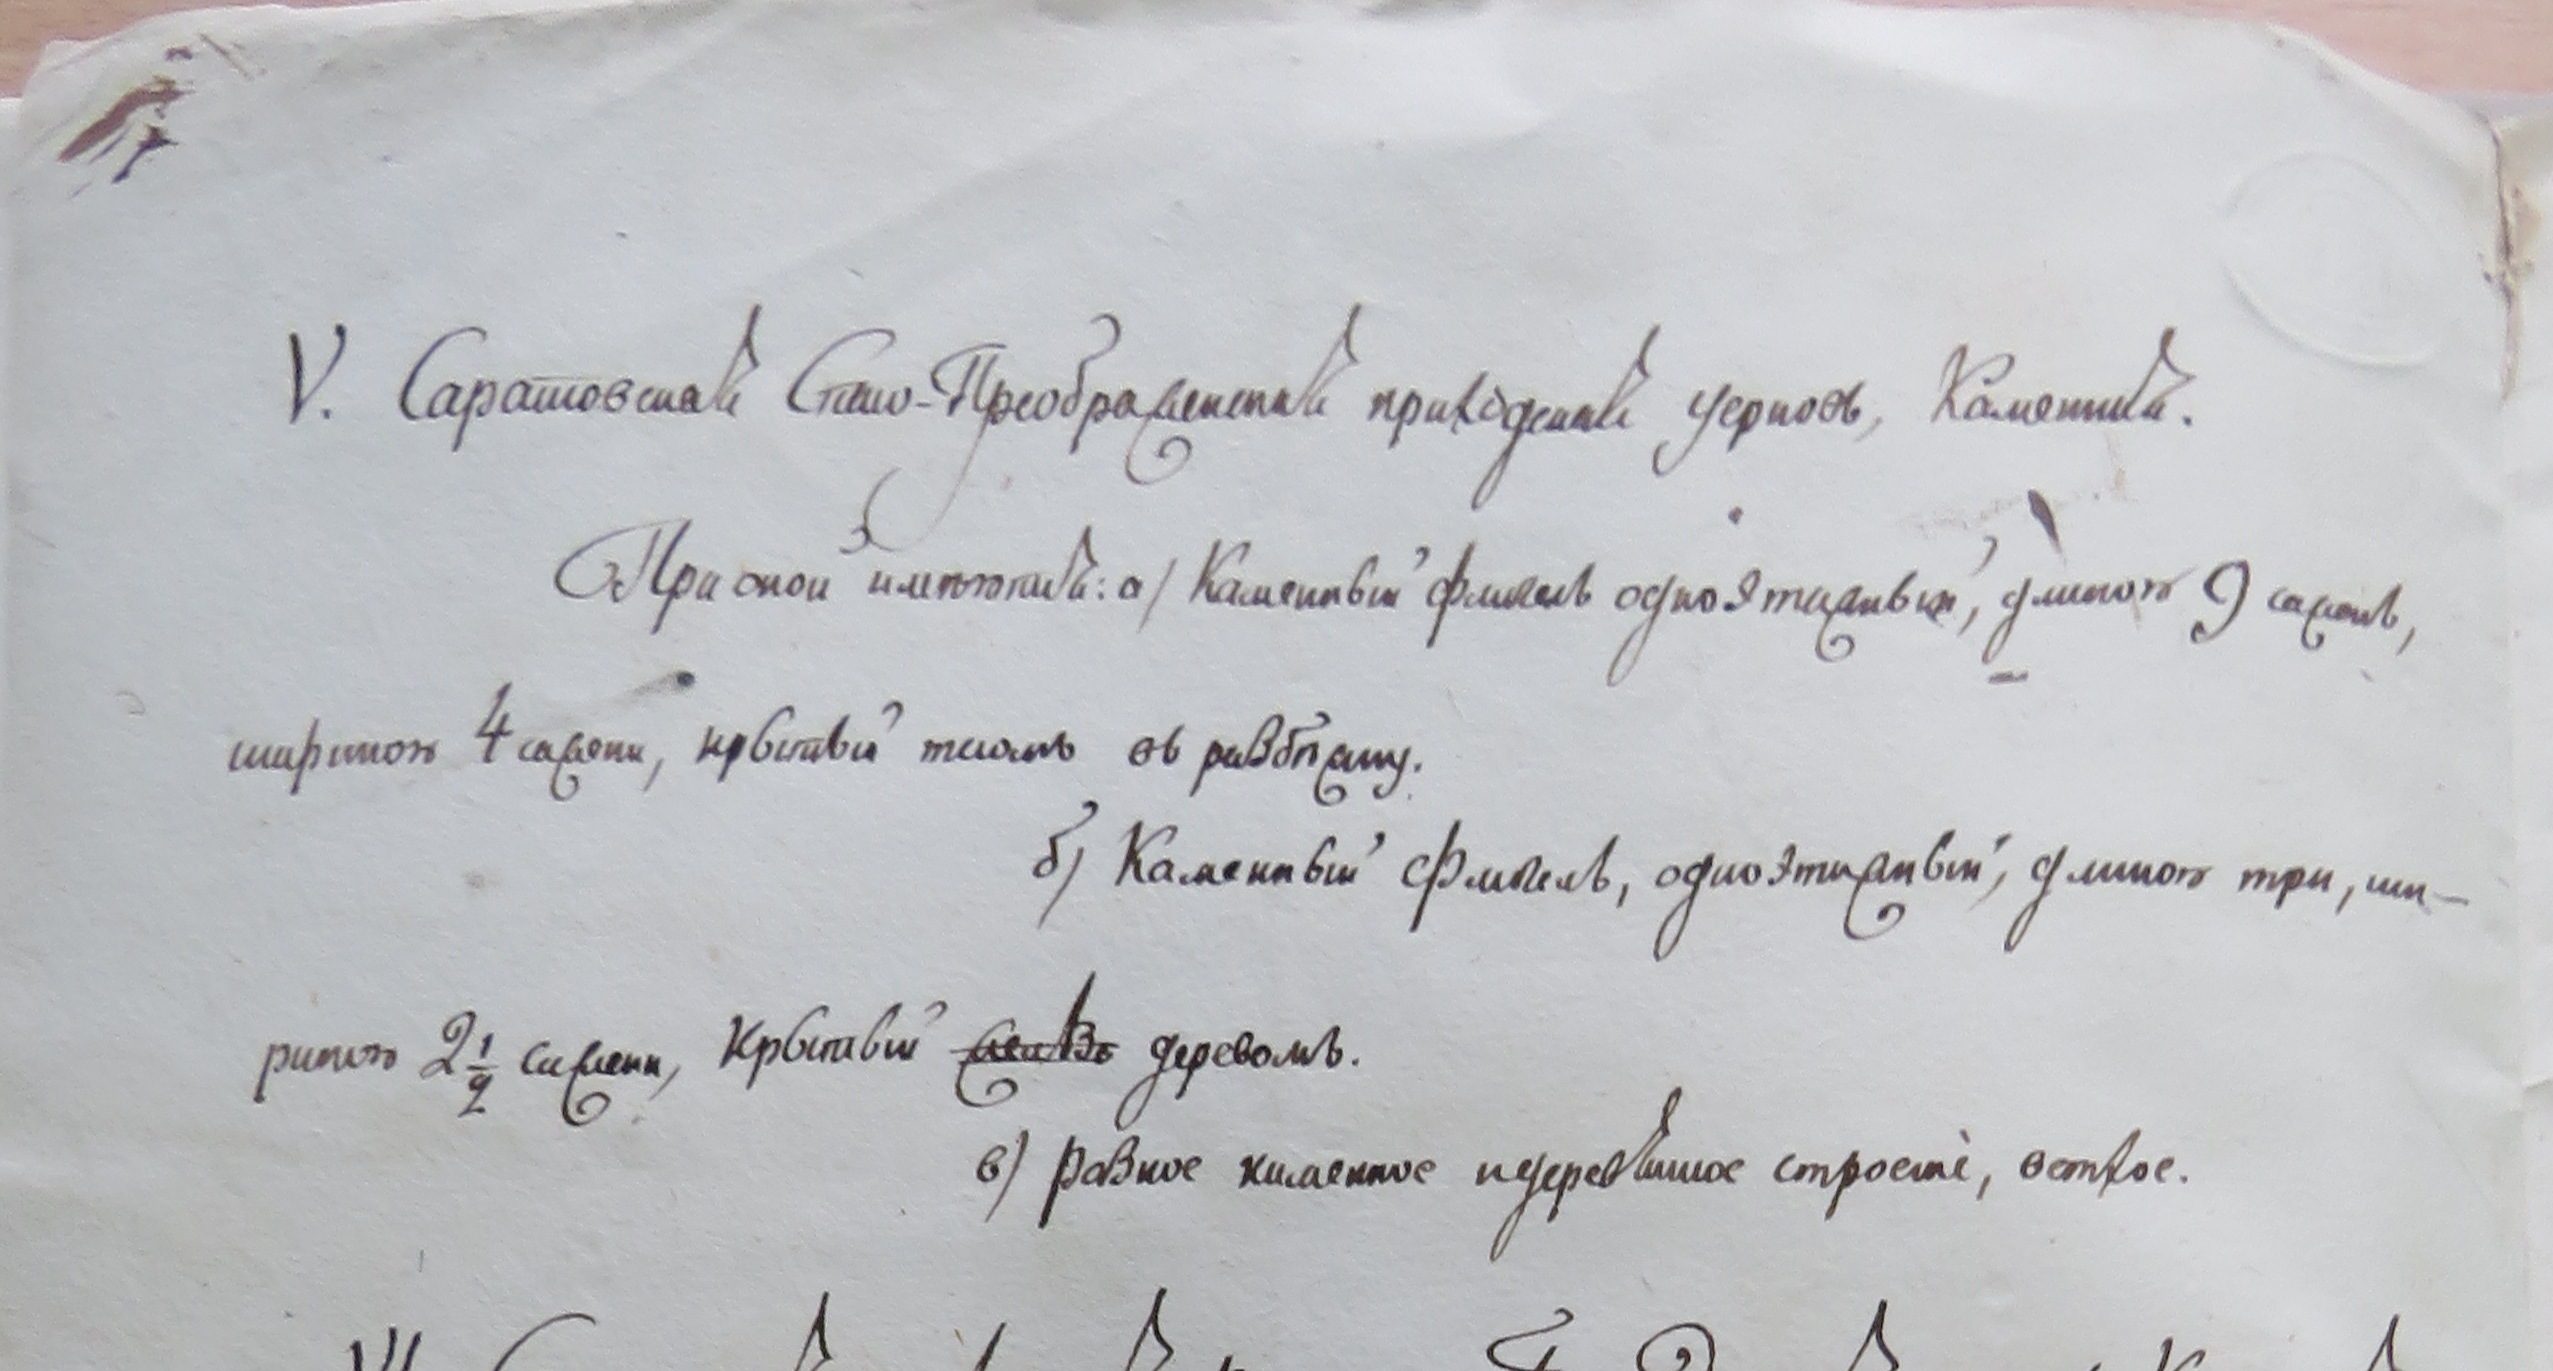 V. Саратовская Спасо-Преображенская приходская церковь, Каменная.
При оной имеются: а) Каменный флигель одноэтажный, длиною 9 сажень,
шириною 4 сажени, крытый тесомъ въ
б) Каменный флигель, одноэтажный, длиною три, ши-
риною 2 1/2 сажени, крытый деревомъ.
в) Разное каменное и деревянное строеніе, ветхое.